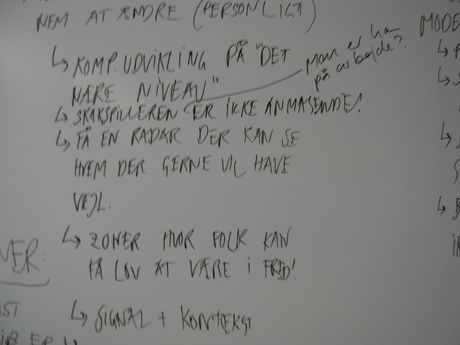 NEM AT ÆNDRE (PERSONLIGT
↳ KOMP. UDVIKLING PÅ "DET
NÆRE NIVEAU"
Man er
på arbejde?
↳ SKAKSPILLEREN ER IKKE ANMASENDE!
↳ FÅ EN RADAR DER KAN SE
HVEM DER GERNE VIL HAVE
VEJL.
↳ ZONER HVOR FOLK KAN
FÅ LOV AT VÆRE I FRED!
↳ SIGNAL + KONTEKST
MODE
VER: